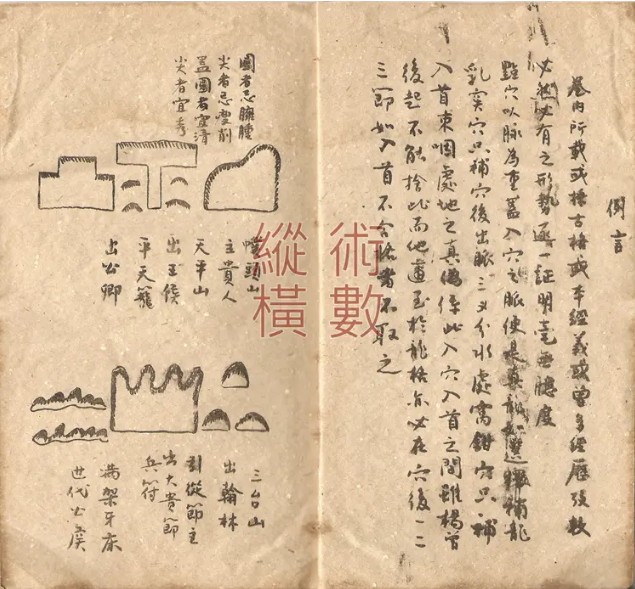 例言
卷内所載或摭古格或本經義或曾多經歷發敘
必然必有之形勢逐一証明毫無臆度
點穴以脉為重蓋入穴之脉便是真龍
補龍
乳突穴只補穴後出脉三义分水處窩鉗穴只補
入首束咽處地之真偽係此入穴入首之間雖楊曾
後起不能捨此而他適至於龍格亦必在穴後一二
三節如入首不合格者不取之
圓者忌臃腫
尖者忌
蓋圓者宜清
尖者宜秀
幞頭山
主貴人
天平山
出王侯
平天籠
出公卿
三台山
出翰林
引從節主
出大貴節
兵符
滿架牙床
世代公侯
縱橫術數